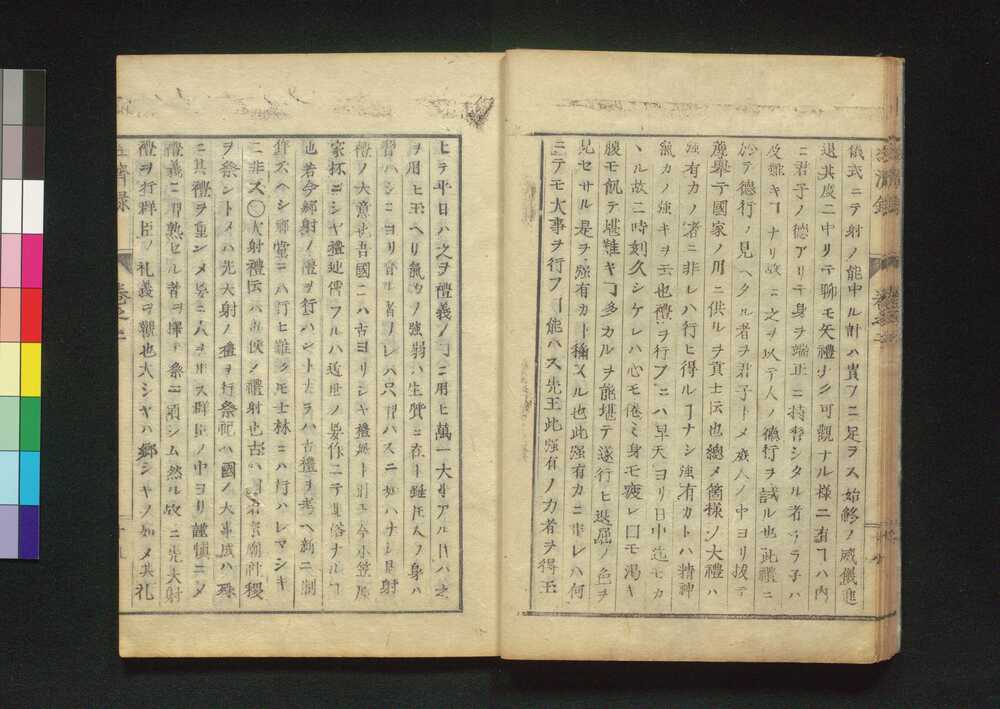 儀式ニテ射ノ能中ル計ハ貴フニ足ヲス始終ノ威儀進
退其度ニ中リテ聊モ矢禮ナク可觀ナル様ニ有ヿハ内
ニ君子ノ德アリテ身ヲ端正ニ持 シタル者ナラ子ハ
及難キヿナリ故ニ之ヲ以テ人ノ德行ヲ試ル也此禮ニ
於テ德行ノ見ヘタル者ヲ君子トメ庶人ノ中ヨリ拔テ
薦擧テ國家ノ用ニ供ルヲ貢士云也總メ箇様ノ大禮ハ
强有力ノ者ニ非レハ行ヒ得ルヿナシ强有力トハ精神
氣力ノ强キヲ云也禮ヲ行フニハ早天ヨリ日中迄モカ
ヽル故ニ時刻久シケレハ心モ倦ミ身モ疲レ口モ渇キ
腹モ飢テ堪難キヿ多カルヲ能堪テ遂行ヒ退屈ノ色ヲ
見セサル是ヲ强有力ト稱スル也此强有力ニ非レハ何
ニテモ大事ヲ行フヿ能ハス先王此强有ノ力者ヲ得玉
ヒテ平日ハ之ヲ禮義ノヿニ用ヒ萬一大事アル時ハ之
ヲ用ヒ玉ヘリ氣力ノ强弱ハ生質ニ在ト雖 人ノ身ハ
習ハシニヨリ 者ノレハ只習ハスニ如ハナシ是射
禮ノ大意也吾國ニハ古ヨリシヤ禮無ト 今小笠原
家抔ニシヤ禮迚傳フルハ近世ノ ニテ 俗ナルヿ
也若今郷射ノ禮ヲ行ハントナラハ古禮ヲ考ヘ新ニ制
作スヘシ郷黨ニハ行ヒ難クモ士林ニハ行ハレマシキ
ニ非ス〇大射禮云ハ 侯ノ禮射也古ハ國君宗廟社稷
ヲ祭ントメハ先大射ノ禮ヲ行祭祀ハ國ノ大事成ハ殊
ニ其禮ヲ重ンメ 人ヲ用ス群臣ノ中ヨリ謹愼ニメ
禮義ニ習熟セル者ヲ擇テ祭ニ預シム然ル故ニ先大射
禮ヲ行群臣ノ礼義ヲ觀也大シヤハ郷シヤノ如メ其礼
經濟錄
卷之二